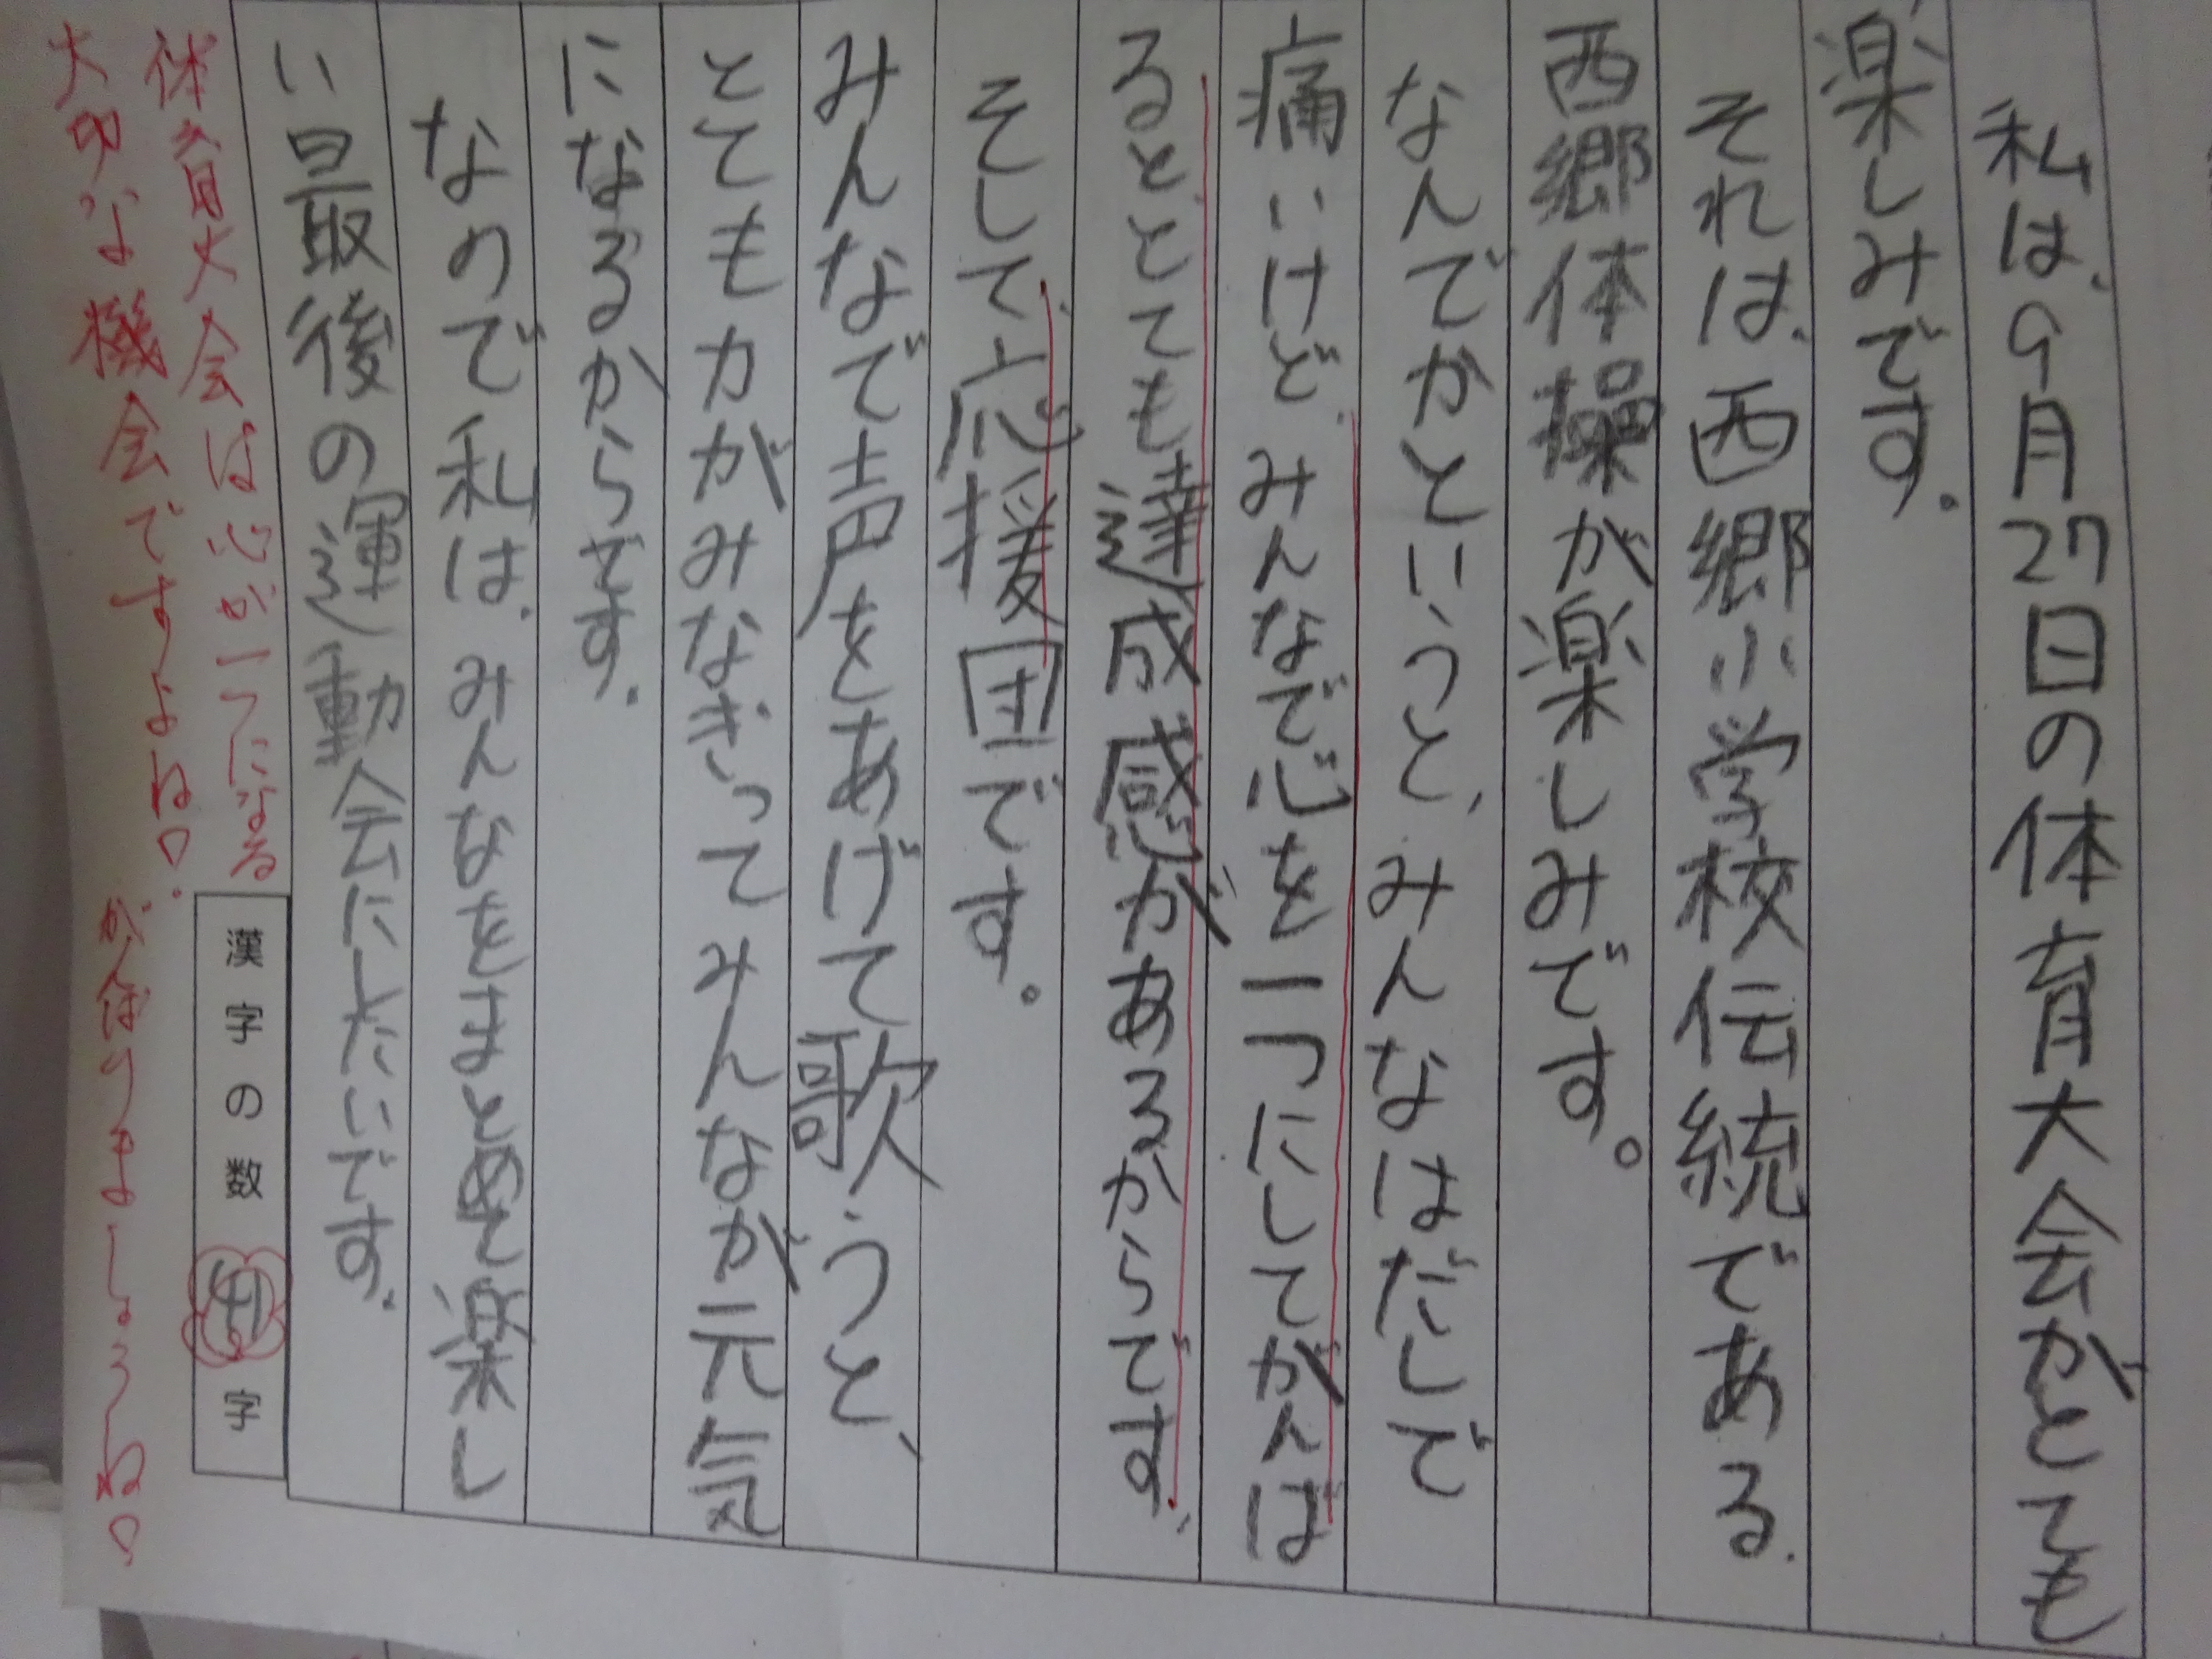 私は、9月27日の体育大会がとても
楽しみです。
それは、西郷小学校伝統である、
西郷体操が楽しみです。
なんでかというと、みんなはだしで
痛いけど、みんなで心を一つにしてがんば
るととても達成感があるからです。
そして、応援団です。
みんなで声をあげて歌うと、
とても力がみなぎってみんなが元気
になるからです。
なので私は、みんなをまとめて楽し
い最後の運動会にしたいです。
体育大会は心が一つになる
大切な機会ですよね！がんばりましょうね！
漢字の数 字